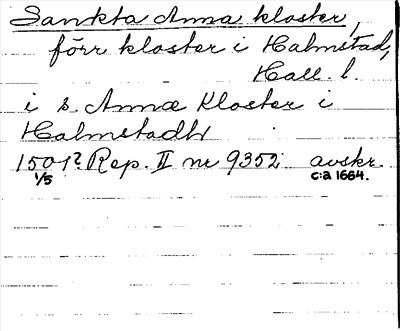 Sankta Anna kloster,
förr kloster i Halmstad,
Hall. l.
i s. Annæ Kloster i
Halmstadh
1501? Rep. II nr 9352 avskr.
1/5 c:a 1664.